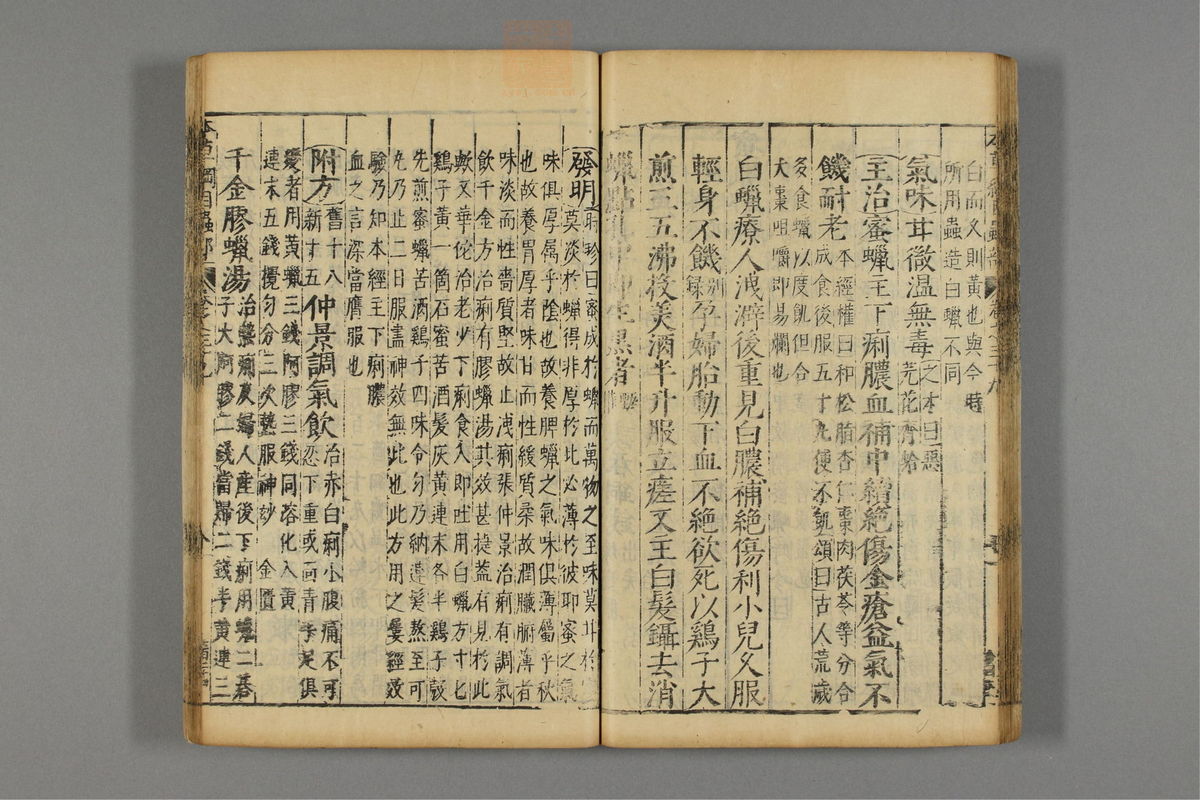 白而久則黃也與今時
所用蟲造白蠟不同
氣味甘微溫無毒之才曰惡芫花齊蛤
主治蜜蠟主下痢膿血補中續絕傷金瘡益氣不
饑耐老本經權曰和松脂杏仁棗肉茯苓等分合成食後服五十丸便不飢頌曰古人荒歲
多食蠟以度飢但合
大棗咀嚼即易爛也
白蠟療人洩澼後重見白膿補絕傷利小兒久服
輕身不饑別錄孕婦胎動下血不絕欲死以鷄子大
煎三五沸投美酒半升服立瘥又主白髮鑷去消
蠟點孔中即生黑者甄權
發明時珍曰蜜成於蠟而萬物之至味莫甘於蜜
莫淡於蠟得非厚於此必薄於彼耶蜜之氣
味俱厚属乎陰也故養脾蠟之氣味俱薄屬乎
也故養胃厚者味甘而性緩質柔故潤臟腑薄者
味淡而性嗇質堅故止洩痢張仲景治痢有調氣
飲千金方治痢有膠蠟湯其效甚捷蓋有見於此
歟又華佗治老少下痢食入即吐用白蠟方寸匕
鷄子黃一箇石蜜苦酒髮灰黃連末各半鷄子殼
先煎蜜蠟苦酒鷄子四味令勻乃納連髮熬至可
丸乃止二日服盡神效無比也此方用之屢經效
驗乃知本經主下痢膿
血之言深當膺服也
附方舊十八新十五仲景調氣飲治赤白痢小腹痛不可忍下重或面青手足俱
變者用黃蠟三錢阿膠三錢同溶化入黃
連末五錢攪勻分三次熱服神妙金匱
千金膠蠟湯治熱痢及婦人産後下痢用蠟二棊子大阿膠二錢當歸二錢半黃連三